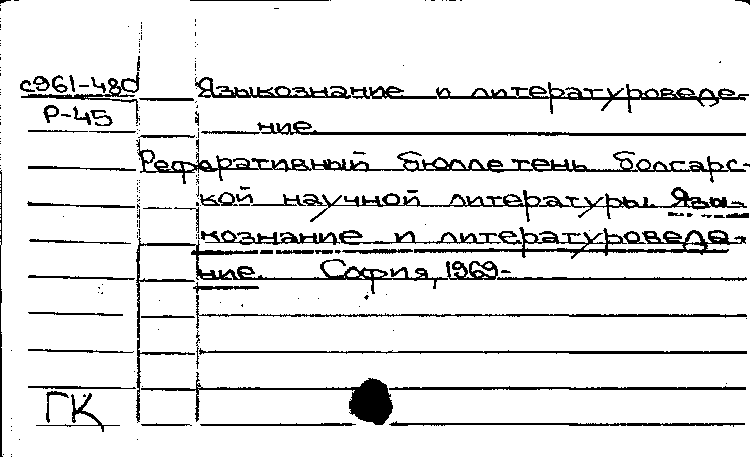 с961-480 Языкознание и литературоведе-
Р-45 ние.
Реферативный бюллетень болгарс-
кой научной литературы. Язы-
кознание и литературоведе-
ние. София, 1969-
ГК